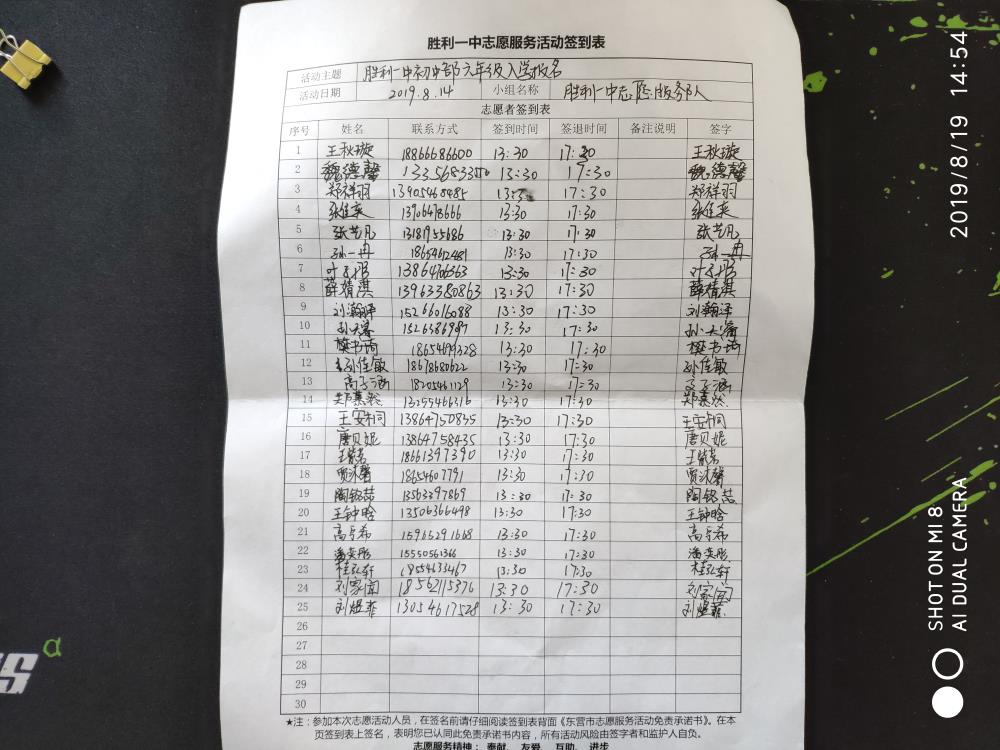 胜利一中志愿服务活动签到表
活动主题 胜利一中初中部六年级入学报名
活动日期 2019.8.14 小组名称 胜利一中志愿服务队
志愿者签到表
序号 姓名 联系方式 签到时间 签退时间 备注说明 签字
1 王秋璇 18866686600 13:30 17:30 王秋璇
2 魏德馨 13:30 17:30 魏德馨
3 郑祥羽 13905468485 17:30 郑祥羽
4 张佳奕 13:30 17:30 张佳奕
5 张艺凡 13:30 17:30 张艺凡
6 孙一冉 18654612481 13:30 17:30 孙一冉
7 13864706563 13:30 17:30
8 薛精淇 13963380863 13:30 17:30 薛精淇
9 刘瀚泽 15266016088 13:30 17:30 刘瀚泽
10 1526386987 13:30 17:30
11 樊书琦 18654694328 13:30 17:30 樊书琦
12 孙佳敏 18678680622 13:30 17:30 孙佳敏
13 高子涵 18205461129 13:30 17:30 子涵
14 郑慕然 13255466316 13:30 17:30 郑慕然
15 13864750835 13:30 17:30
16 唐贝妮 13864758435 13:30 17:30 唐贝妮
17 18661397390 13:30 17:30
18 贾沐馨 18654607791 13:30 17:30 贾沐馨
19 陶铭喆 13563397869 13:30 17:30 陶铭喆
20 王钟晗 13506366498 13:30 17:30 王钟晗
21 15965291668 13:30 17:30
22 潘奕彤 15550561366 13:30 17:30 潘奕彤
23 桂弘轩 18554633467 13:30 17:30 桂弘轩
24 18562115376 13:30 17:30
25 刘煜菲 13054617528 13:30 17:30 刘煜菲
26
27
28
29
30
★注：参加本次志愿活动人员，在签名前请仔细阅读签到表背面《东营市志愿服务活动免责承诺书》。在本
页签到表上签名，表明您已认同此免责承诺书内容，所有活动风险由签字者和监护人自负。
志愿服务精神：奉献、友爱、互助、进步
2019/8/19 14:54
SHOT ON MI 8
AI DUAL CAMERA
α